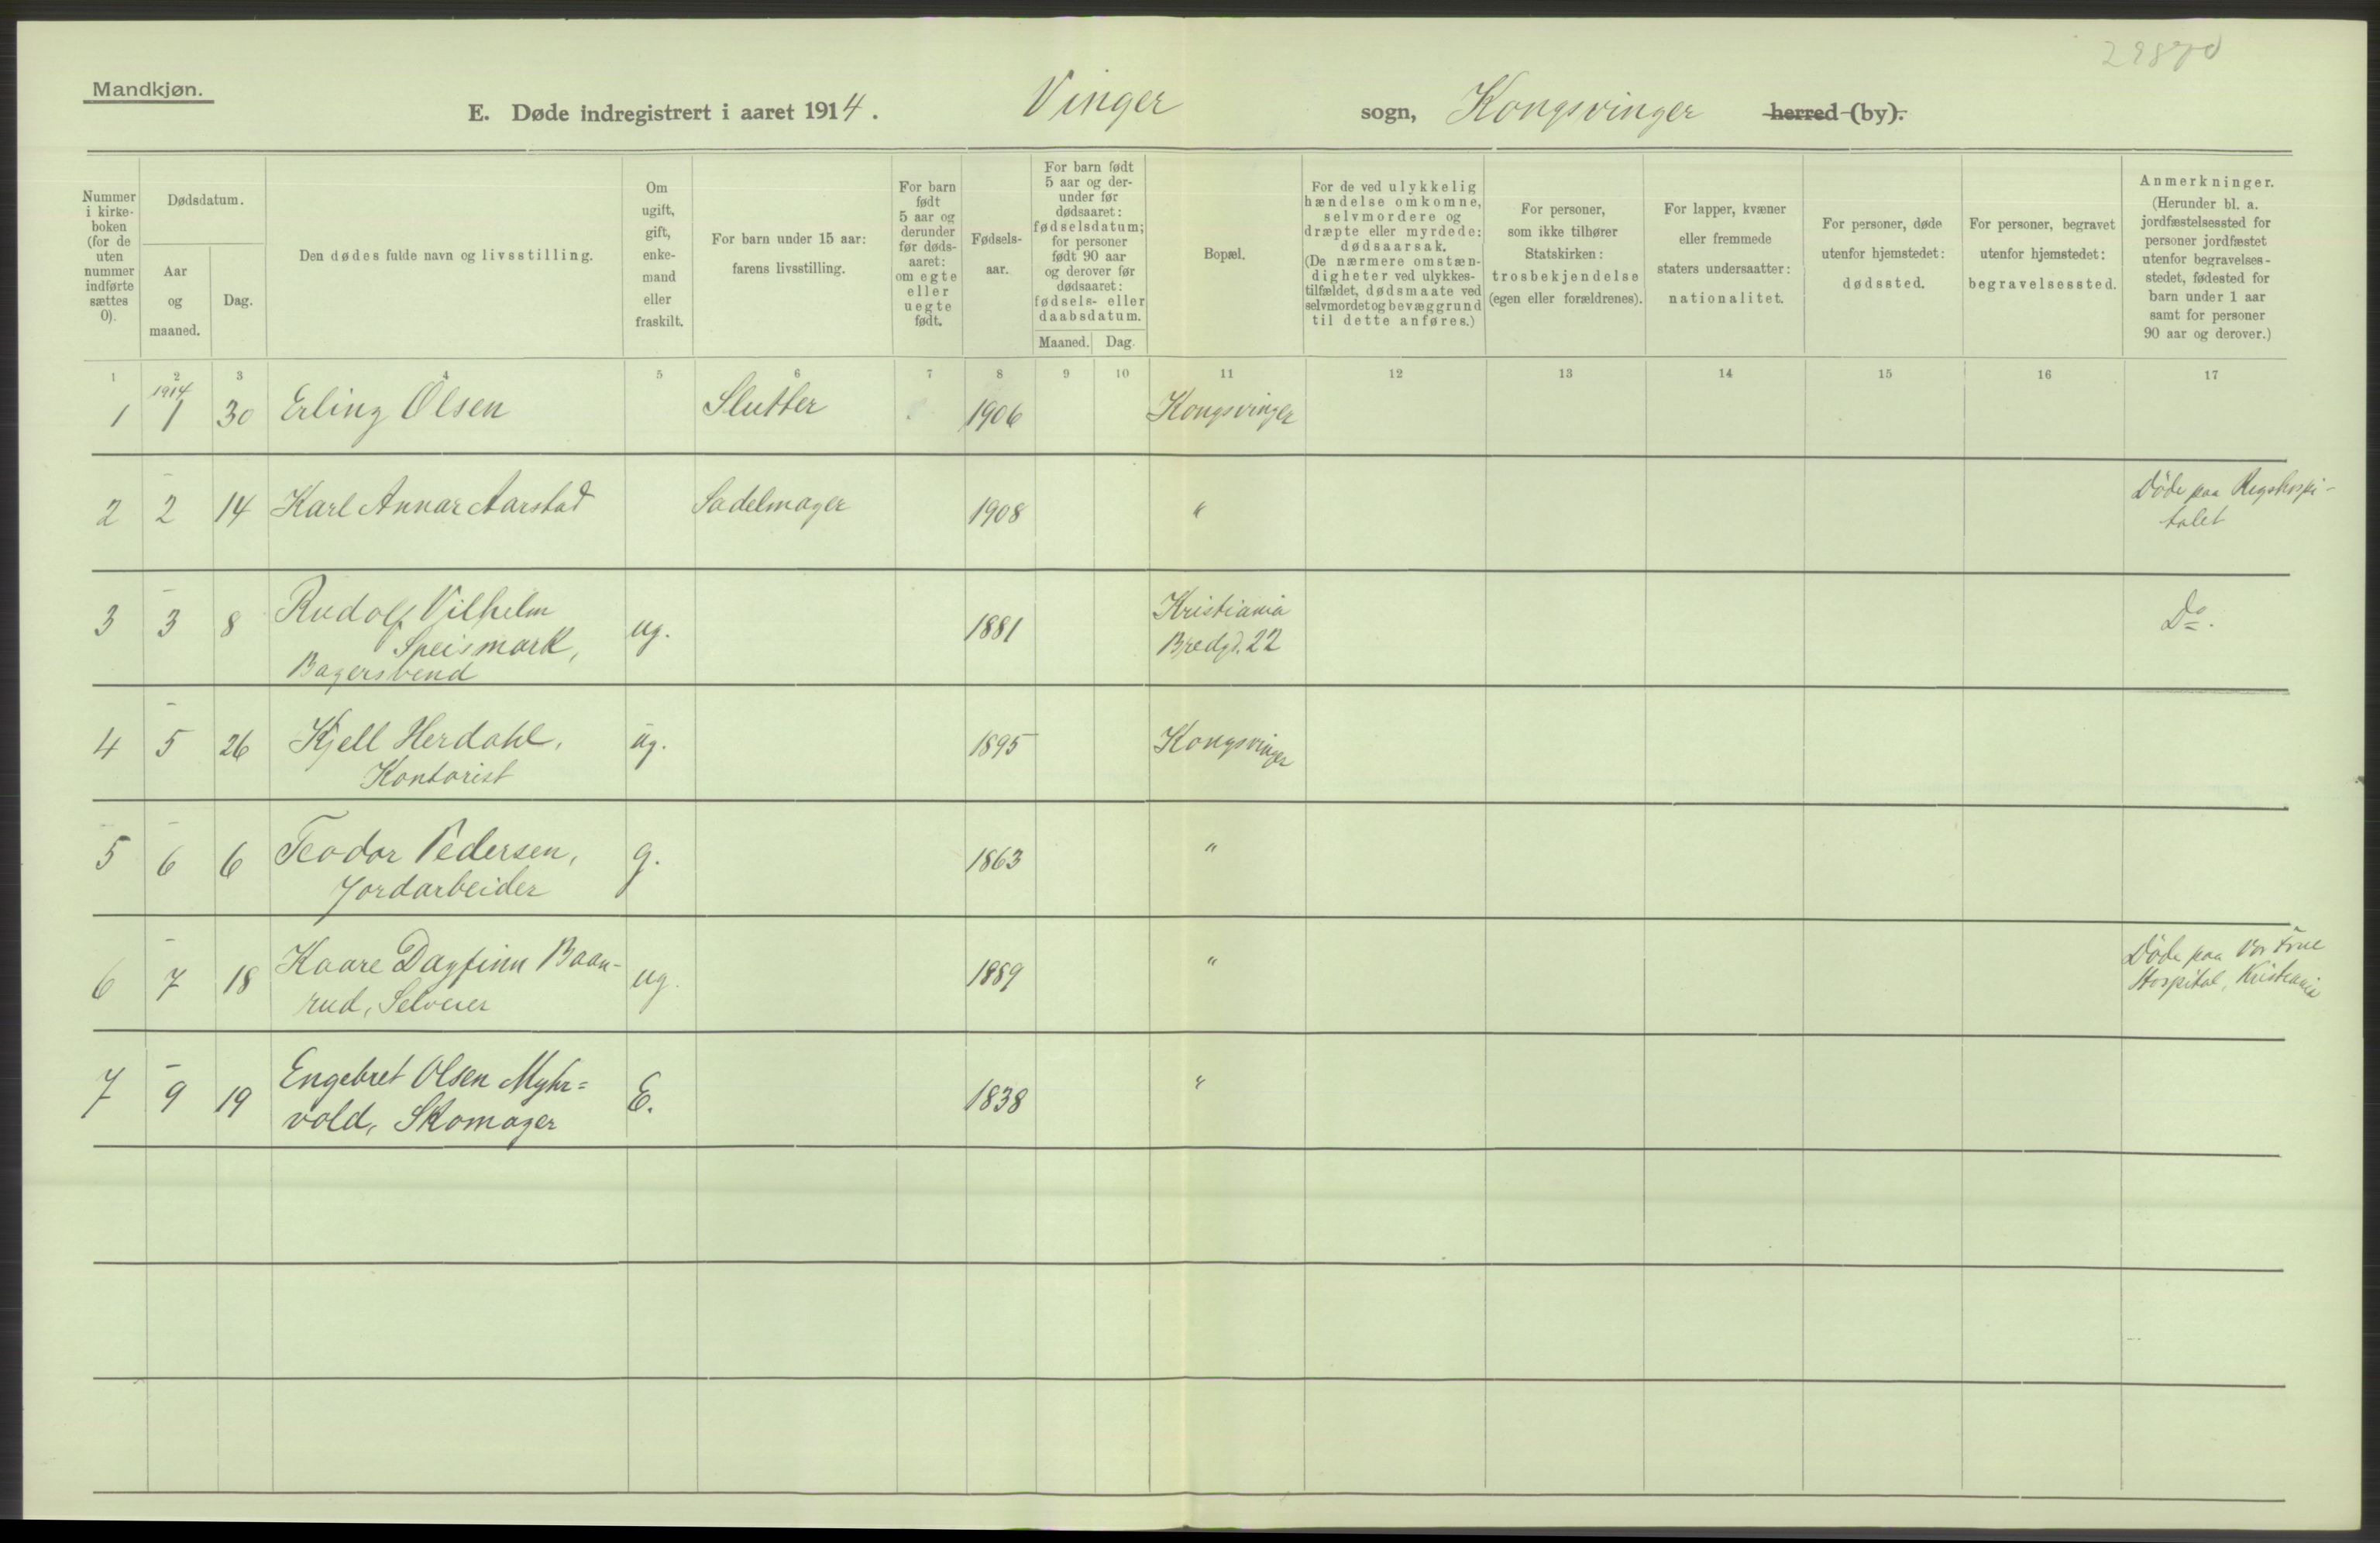 29870
Mandkjøn.
E. Døde indregistrert i aaret 1914. Vinger sogn, Kongsvinger herred (by).
Nummer i kirke-boken (for de uten nummer indførte sættes 0).
Dødsdatum.
Aar og maaned.
Dag.
Den dødes fulde navn og livsstilling.
Om ugift, gift, enke-mand eller fraskilt.
For barn under 15 aar: farens livsstilling.
For barn født 5 aar og derunder før døds-aaret: om egte eller uegte født.
Fødsels-aar.
For barn født 5 aar og der-under før dødsaaret: fødselsdatum; for personer født 90 aar og derover før dødsaaret: fødsels- eller daabsdatum.
Maaned. Dag.
Bopæl.
For de ved ulykkelig hændelse omkomne, selvmordere og dræpte eller myrdede: dødsaarsak. (De nærmere omstæn-digheter ved ulykkes-tilfældet, dødsmaate ved selvmordet og bevæggrund til dette anføres.)
For personer, som ikke tilhører Statskirken: trosbekjendelse (egen eller forældrenes).
For lapper, kvæner eller fremmede staters undersaatter: nationalitet.
For personer, døde utenfor hjemstedet: dødssted.
For personer, begravet utenfor hjemstedet: begravelsessted.
Anmerkninger. (Herunder bl. a. jordfæstelsessted for personer jordfæstet utenfor begravelses-stedet, fødested for barn under 1 aar samt for personer 90 aar og derover.)
1 2 3 4 5 6 7 8 9 10 11 12 13 14 15 16 17
1914
1 1 30 Erling Olsen Slutter 1906 Kongsvinger
2 2 14 Karl Annar Aarstad Sadelmager 1908 " Døde paa Rigshospi-
talet
3 3 8 Rudolf Vilhelm
Speismark, ug. 1881 Kristiania
Bredgd. 22 Do.
Bagersvend
4 5 26 Kjell Herdahl, ug. 1895 Kongsvinger
Kontorist
5 6 6 Teodor Pedersen, g. 1863 "
Jordarbeider
6 7 18 Kaare Dagfinn Baan-
rud, Selveier ug. 1889 " Døde paa Vor Frue
Hospital, Kristiania
7 9 19 Engebret Olsen Myhr=
vold, Skomager E. 1838 "